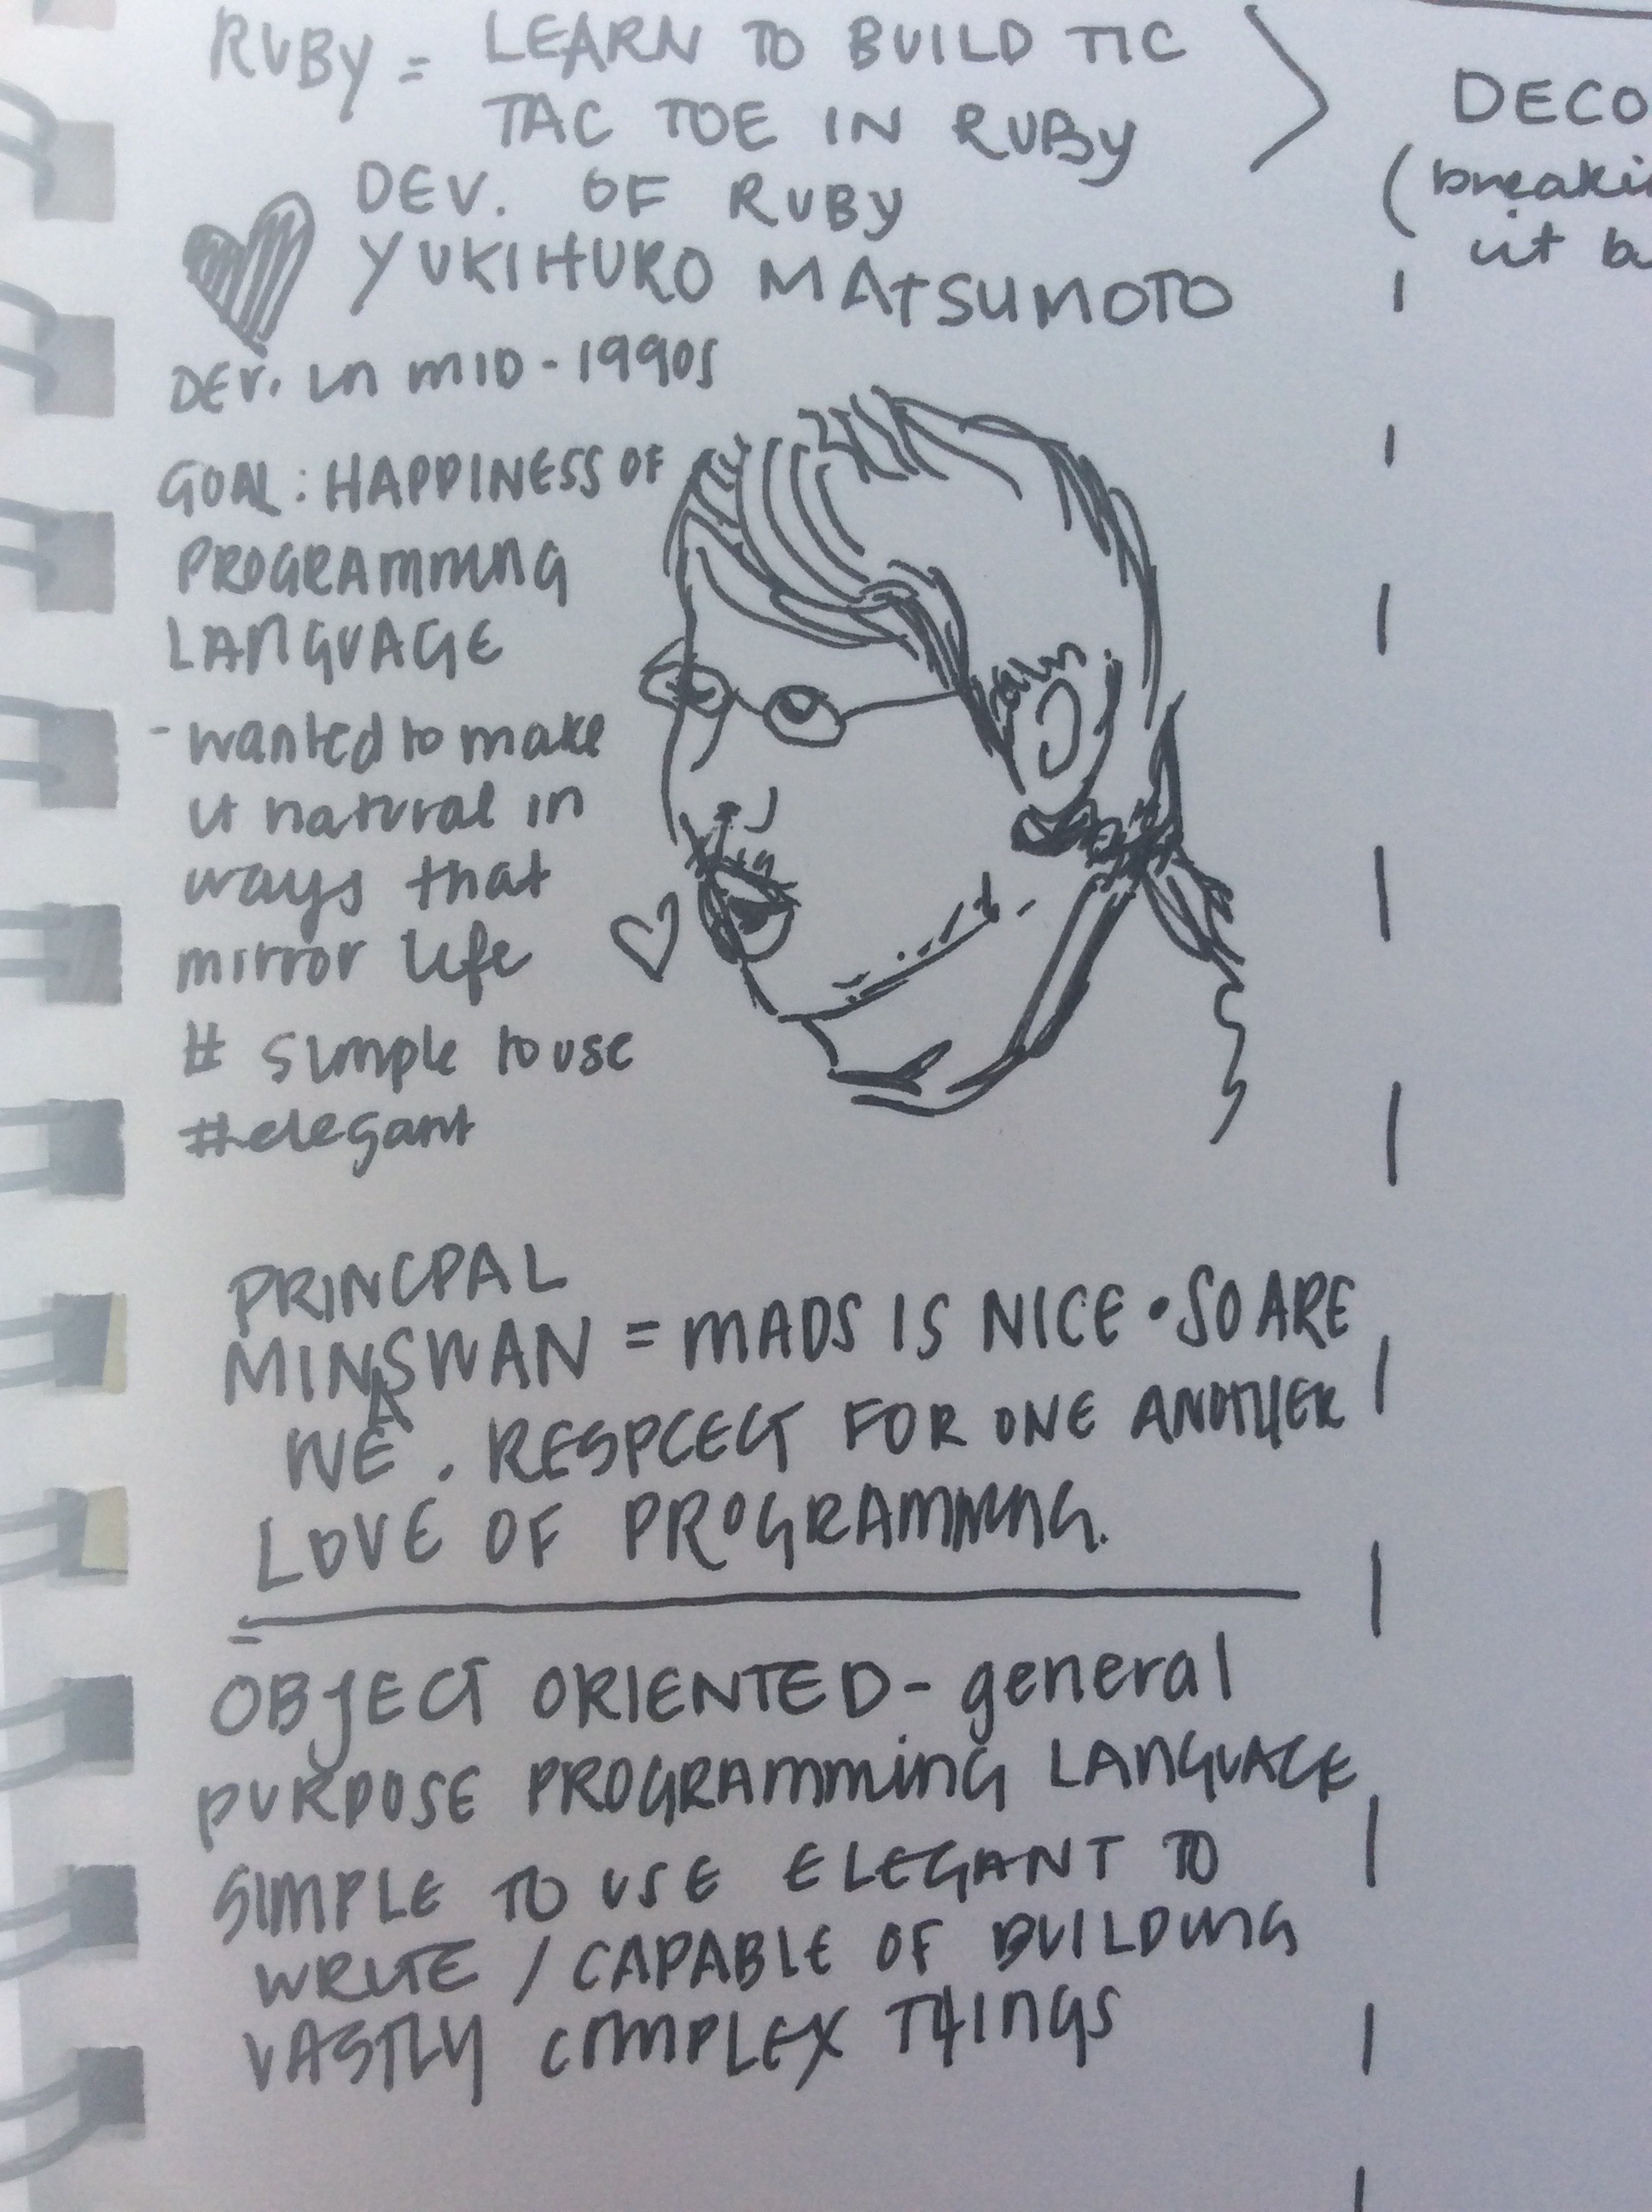 RUBY = LEARN TO BUILD TIC
TAC TOE IN RUBY
DEV. OF RUBY
YUKIHURO MATSUMOTO
DEV. in MID-1990s
GOAL: HAPPINESS OF
PROGRAMMING
LANGUAGE
- wanted to make
it natural in
ways that
mirror life
# simple to use
#elegant
PRINCPAL
MINSWAN = MADS IS NICE • SO ARE
A
WE. RESPCECT FOR ONE ANOTHER
LOVE OF PROGRAMMING.
OBJECT ORIENTED - general
PURPOSE PROGRAMMING LANGUAGE
SIMPLE TO USE ELEGANT TO
WRITE / CAPABLE OF BUILDING
VASTLY COMPLEX THINGS
DECO
(breaki
it b